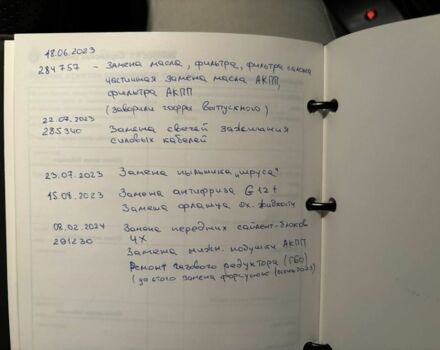 18.06.2023
284757 - Замена масла, фильтра, фильтра салона
частичная замена масла АКПП,
фильтра АКПП
(заварили гофры выпускного)
22.07.2023
285340 Замена свечей зажигания
силовых кабелей
23.07.2023 Замена пыльника "шруса"
15.08.2023 Замена антифриза G12+
Замена фланца ох. жидкости
08.02.2024 Замена передних сайлент-блоков
291230 ЧХ
Замена нижн. подушки АКПП
Ремонт газового редуктора (ГБО)
(до этого замена форсунок